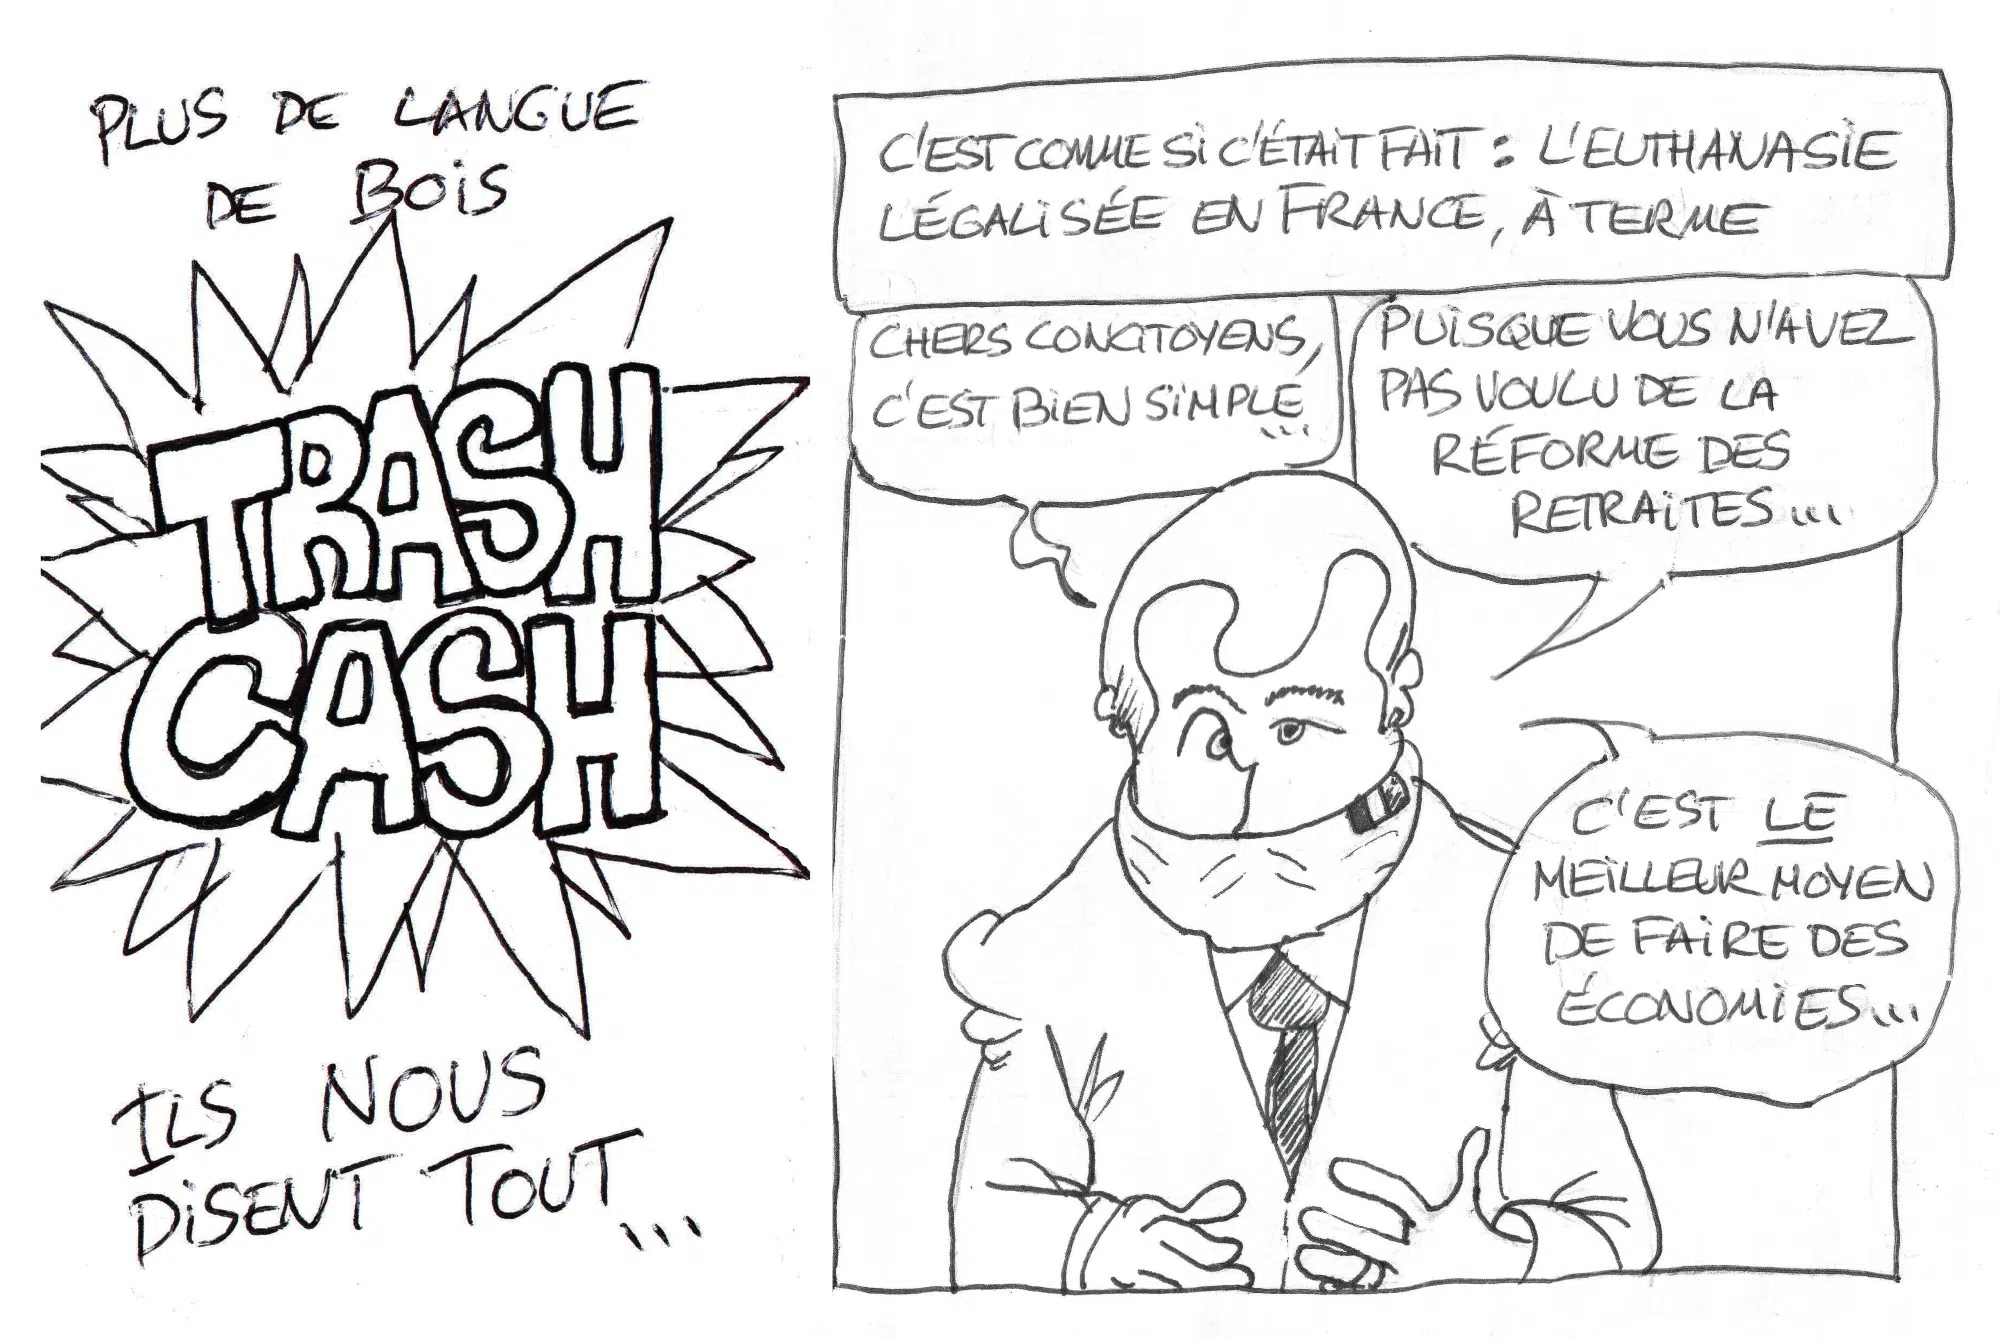 PLUS DE LANGUE
DE BOIS
TRASH
CASH
ILS NOUS
DISENT TOUT...
C'EST COMME SI C'ÉTAIT FAIT : L'EUTHANASIE
LÉGALISÉE EN FRANCE, À TERME
CHERS CONCITOYENS,
C'EST BIEN SIMPLE...
PUISQUE VOUS N'AVEZ
PAS VOULU DE LA
RÉFORME DES
RETRAITES...
C'EST LE
MEILLEUR MOYEN
DE FAIRE DES
ÉCONOMIES...